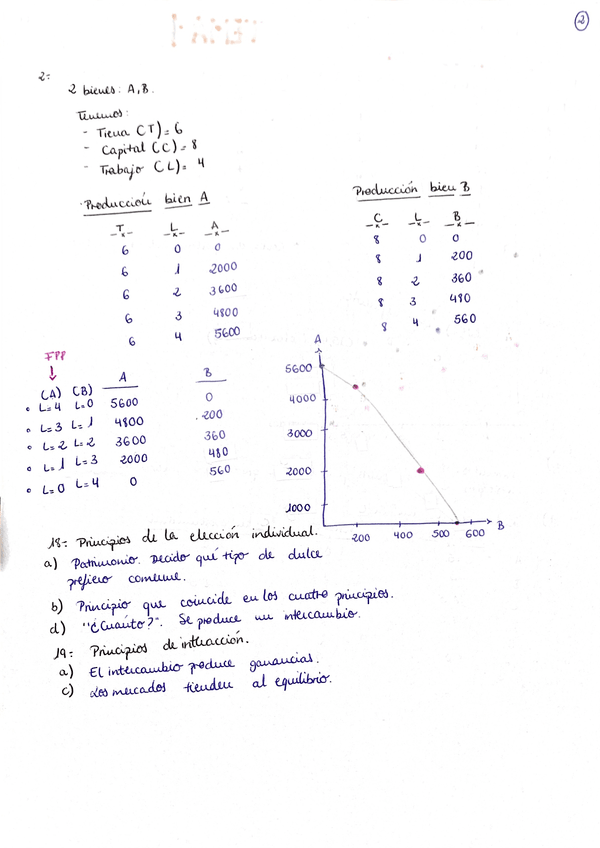 2
2=
2 bienes: A, B.
Tenemos:
- Tierra (T) = 6
- Capital (C) = 8
- Trabajo (L) = 4
Producción bien A
T L A
6 0 0
6 1 2000
6 2 3600
6 3 4800
6 4 5600
Producción bien B
C L B
8 0 0
8 1 200
8 2 360
8 3 480
8 4 560
FPP
(A) (B) A B
L=4 L=0 5600 0
L=3 L=1 4800 200
L=2 L=2 3600 360
L=1 L=3 2000 480
L=0 L=4 0 560
A
5600
4000
3000
2000
1000
200 400 500 600 B
18= Principios de la elección individual.
a) Patrimonio. Decido qué tipo de dulce
prefiero comerme.
b) Principio que coincide en los cuatro principios.
d) "¿Cuánto?". Se produce un intercambio.
19= Principios de interacción.
a) El intercambio produce ganancias.
c) Los mercados tienden al equilibrio.